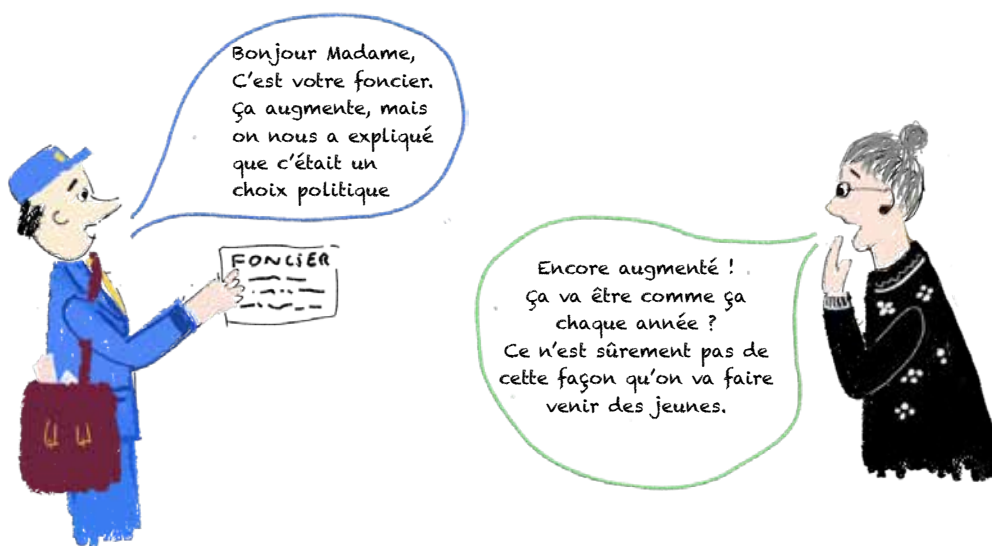 Bonjour Madame,
C'est votre foncier.
Ça augmente, mais
on nous a expliqué
que c'était un
choix politique
FONCIER
Encore augmenté !
Ça va être comme ça
chaque année ?
Ce n'est sûrement pas de
cette façon qu'on va faire
venir des jeunes.